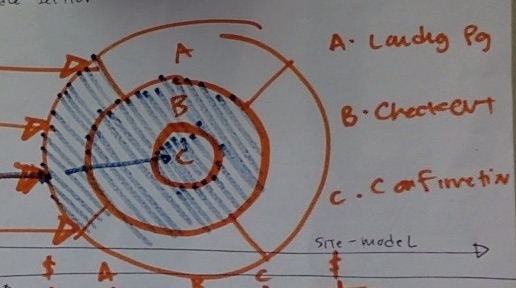 A
A. Landing Pg
B
B. Checkout
C
C. Confirmation
site-model
$ A B C $